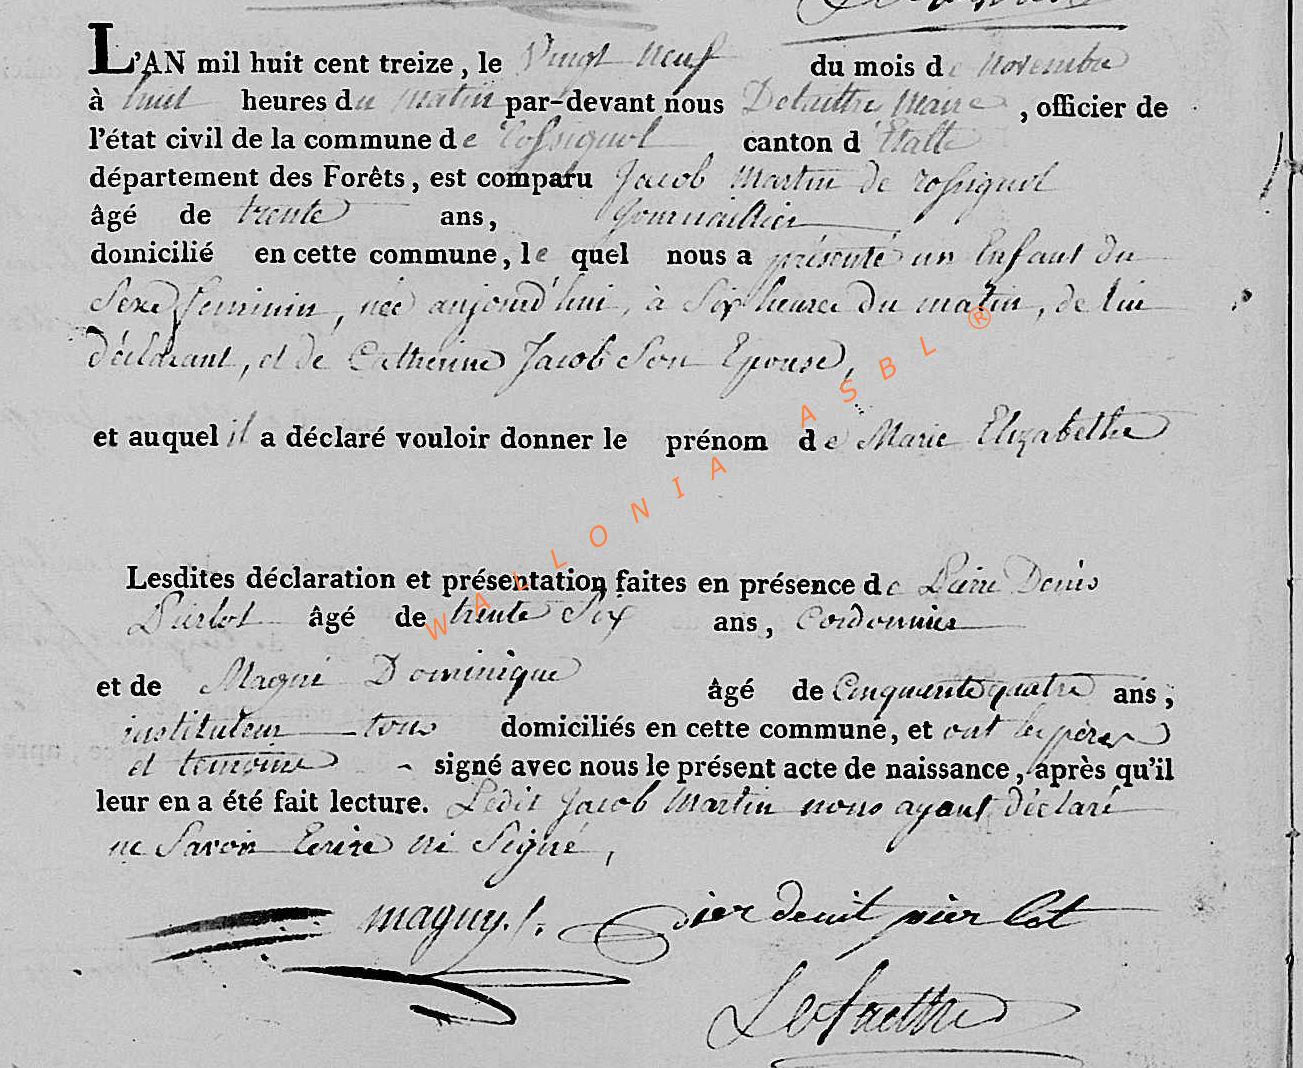 L'AN mil huit cent treize, le Vingt neuf du mois de novembre
à huit heures du matin par-devant nous Maire, officier de
l'état civil de la commune de rossignol canton d'Etalle
département des Forêts, est comparu Jacob Martin de rossignol
âgé de trente ans, Journaillier
domicilié en cette commune, le quel nous a présenté un Enfant du
Sexe feminin, née aujourd'hui, à Six heures du matin, de lui
déclarant, et de Catherine Jacob Son Epouse,
et auquel il a déclaré vouloir donner le prénom de Marie Elizabethe
WALLONIA ASBL ®
Lesdites déclaration et présentation faites en présence de Denis
Pierlot âgé de trente Six ans, Cordonnier
et de Magni Dominique âgé de Cinquante quatre ans,
instituteur tous domiciliés en cette commune, et ont les pères
et temoins signé avec nous le présent acte de naissance, après qu'il
leur en a été fait lecture. Ledit Jacob Martin nous ayant déclaré
ne Savoir Ecrire ni Signé,
maguy. pier denit pier lot